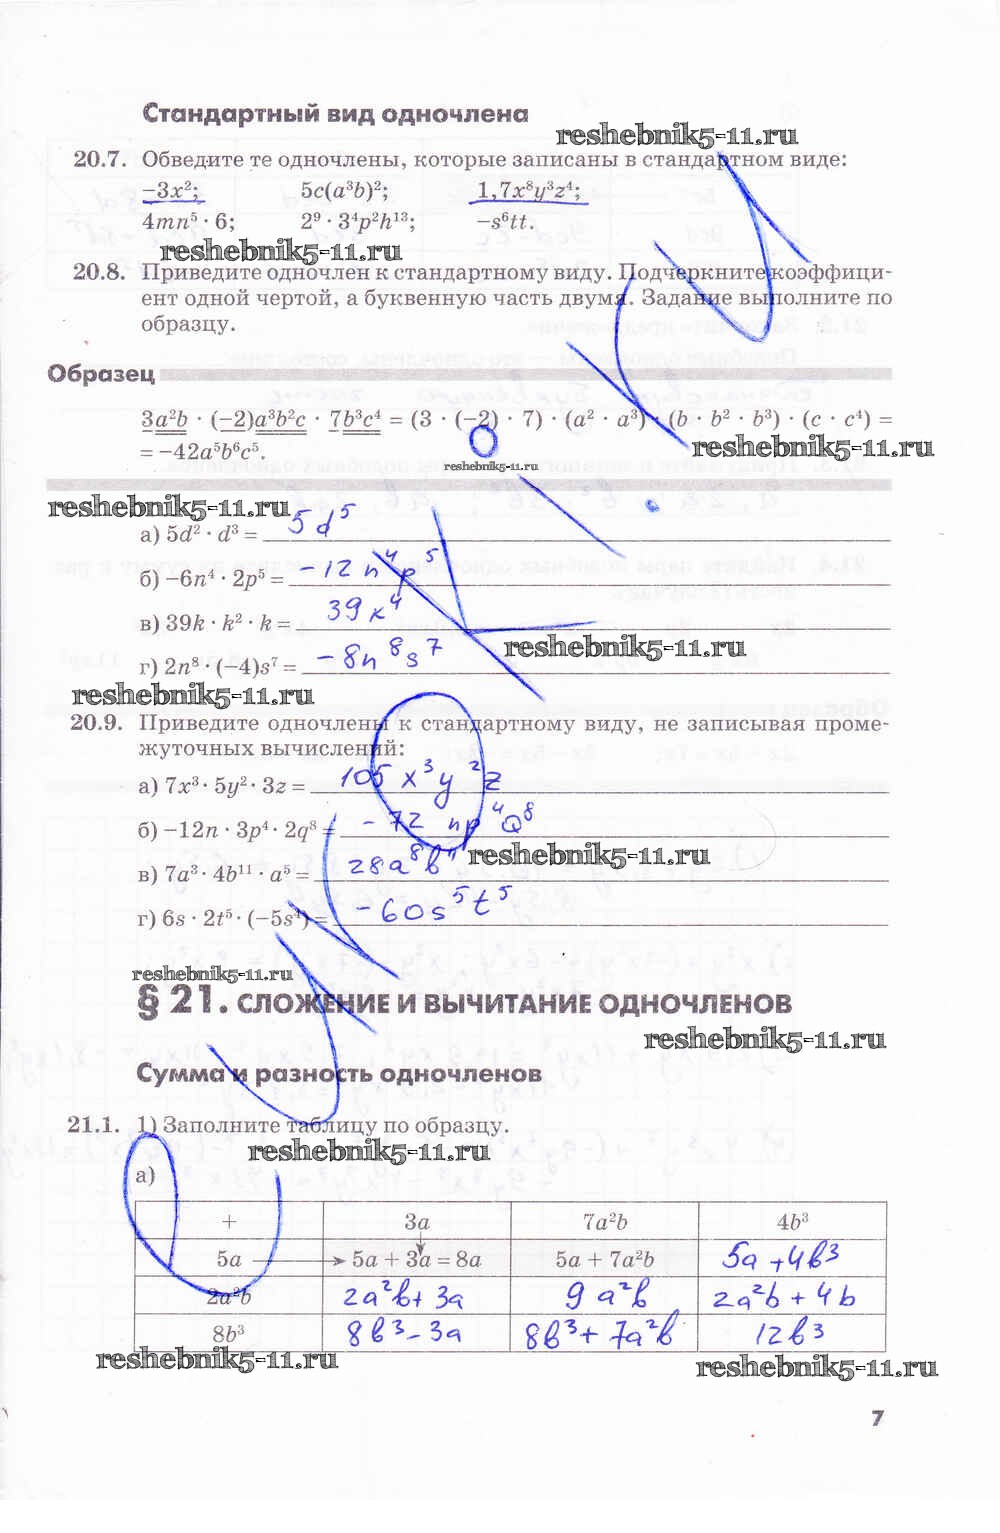 Стандартный вид одночлена
reshebnik5-11.ru
20.7. Обведите те одночлены, которые записаны в стандартном виде:
–3x²; 5c(a³b)²; 1,7x⁸y³z⁴;
4mn⁵ · 6; 2⁹ · 3⁴p²h¹³; –s⁶tt.
reshebnik5-11.ru
20.8. Приведите одночлен к стандартному виду. Подчеркните коэффици-
ент одной чертой, а буквенную часть двумя. Задание выполните по
образцу.
Образец
3a²b · (–2)a³b²c · 7b³c⁴ = (3 · (–2) · 7) · (a² · a³) · (b · b² · b³) · (c · c⁴) =
= –42a⁵b⁶c⁵.
reshebnik5-11.ru
reshebnik5-11.ru
reshebnik5-11.ru
а) 5d² · d³ = 5d⁵
б) –6n⁴ · 2p⁵ = -12n⁴p⁵
в) 39k · k² · k = 39к⁴
г) 2n⁸ · (–4)s⁷ = -8n⁸s⁷
reshebnik5-11.ru
reshebnik5-11.ru
20.9. Приведите одночлены к стандартному виду, не записывая проме-
жуточных вычислений:
а) 7x³ · 5y² · 3z = 105x³y²z
б) –12n · 3p⁴ · 2q⁸ = -72np⁴Q⁸
в) 7a³ · 4b¹¹ · a⁵ = 28a⁸b¹¹
reshebnik5-11.ru
г) 6s · 2t⁵ · (–5s⁴) = -60s⁵t⁵
reshebnik5-11.ru
§ 21. СЛОЖЕНИЕ И ВЫЧИТАНИЕ ОДНОЧЛЕНОВ
reshebnik5-11.ru
Сумма и разность одночленов
21.1. 1) Заполните таблицу по образцу.
reshebnik5-11.ru
а)
+ 3a 7a²b 4b³
5a 5a + 3a = 8a 5a + 7a²b 5a+4b³
2a²b 2a²b+3a 9a²b 2a²b+4b
8b³ 8b³-3a 8b³+7a²b 12b³
reshebnik5-11.ru
reshebnik5-11.ru
7